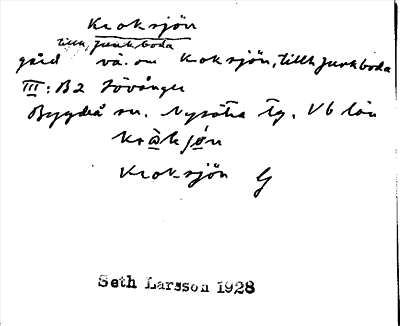 Kroksjön
tillh. Junkboda
gård vä. om Kroksjön, tillh Junkboda
III: B2 Lövånger
Bygdeå sn. Nysätra tg. Vb län
Kroksjön G
Seth Larsson 1928